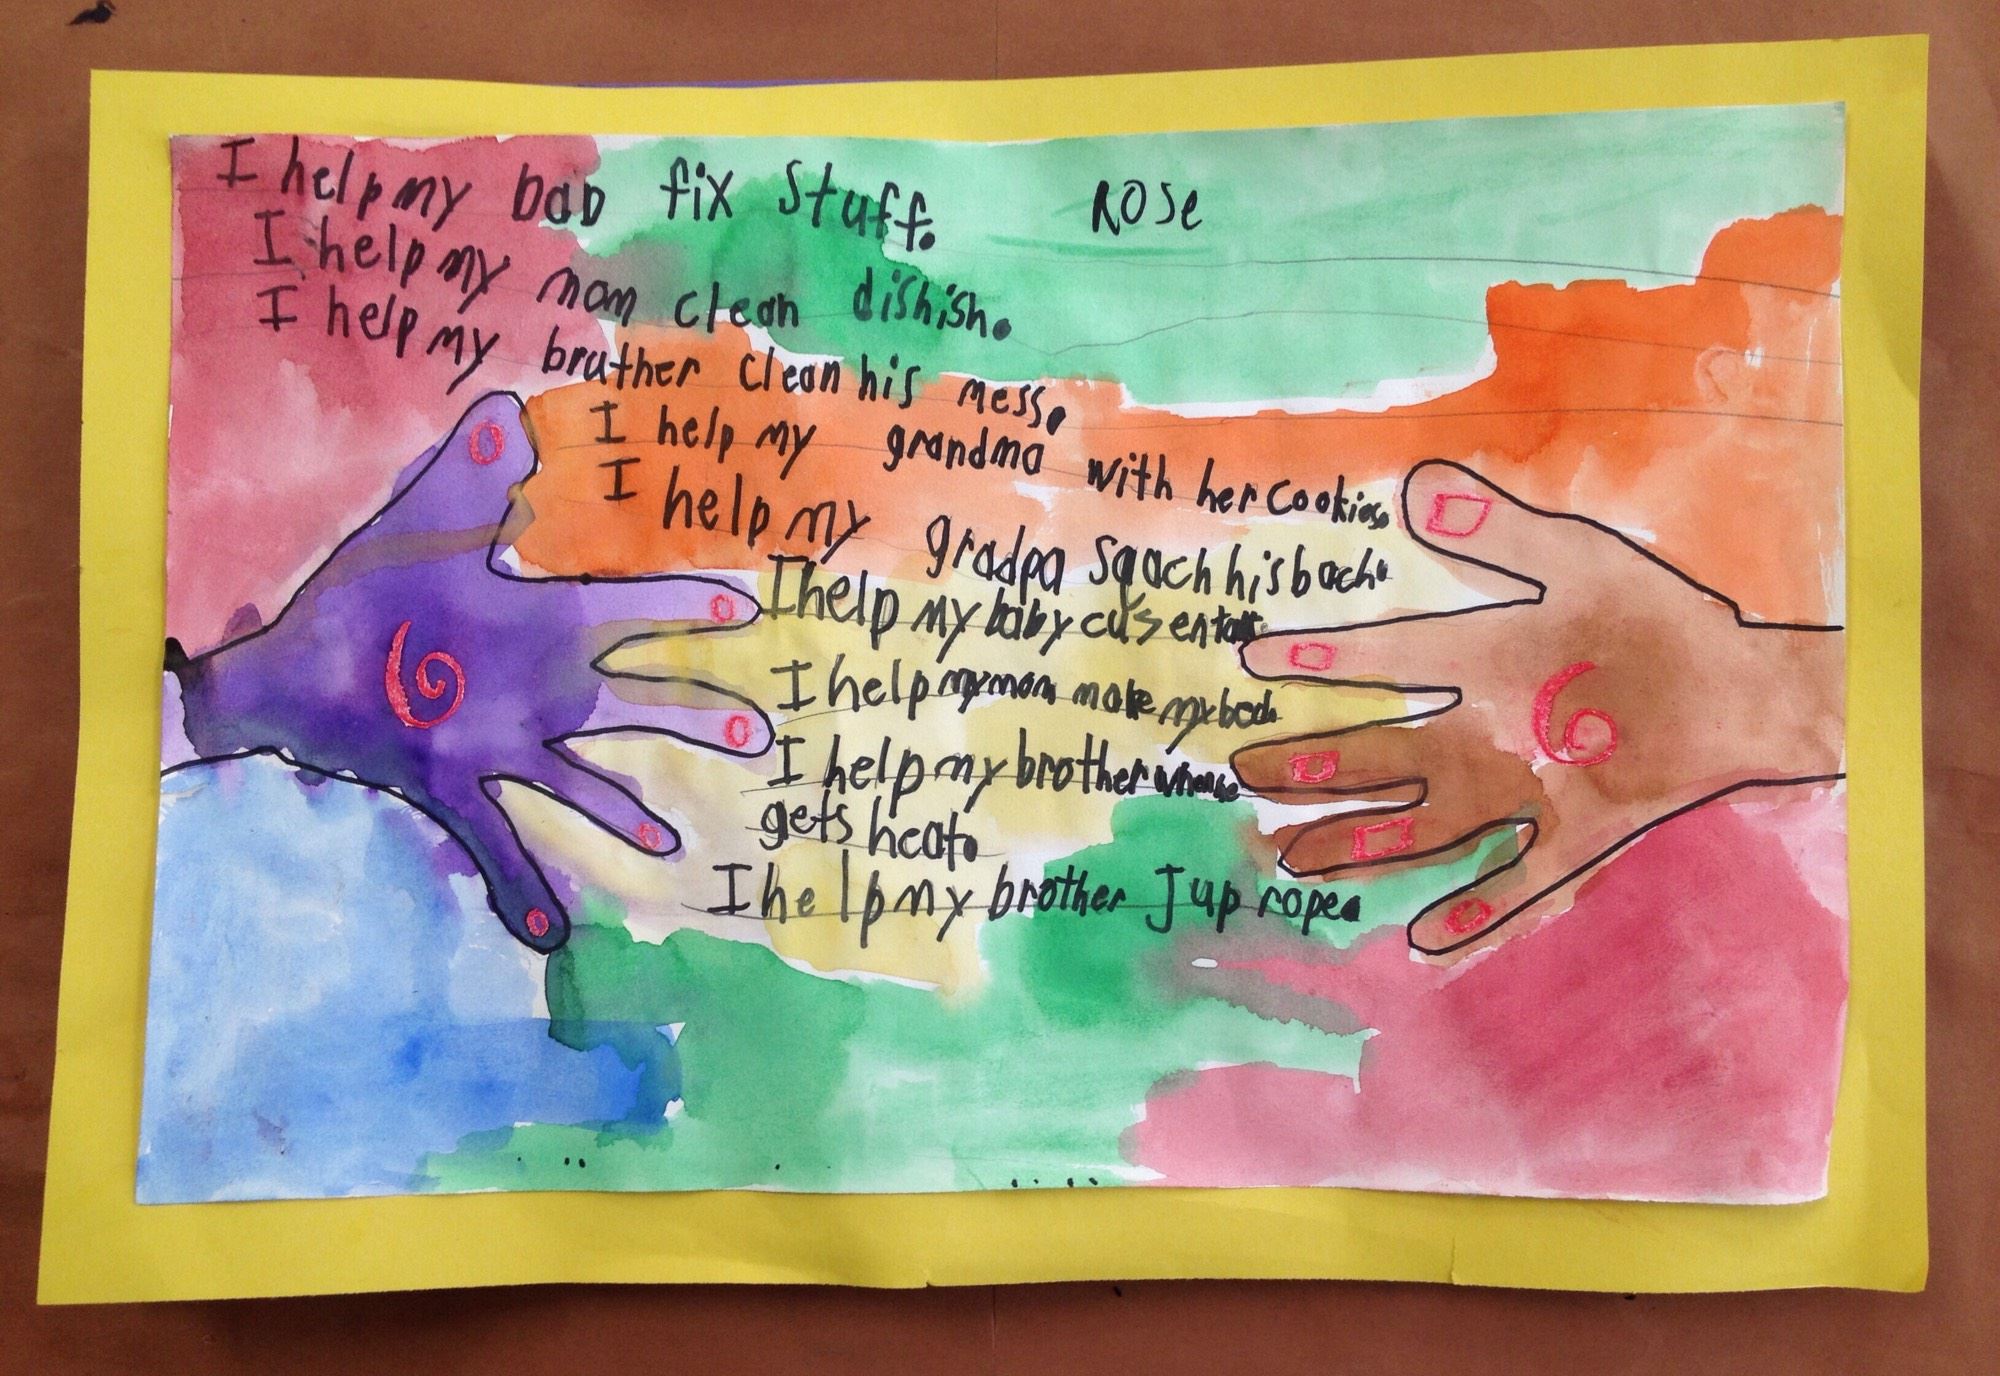 I help my DaD fix Stuff. ROSe
I help my mom clean dishish.
I help my bruther clean his mess.
I help my grandma with her cookies.
I help my gradpa sqach his bach.
I help my baby cus en talk
I help my mom make my bed.
I help my brother when he
gets heat.
I help my brother Jup rope.